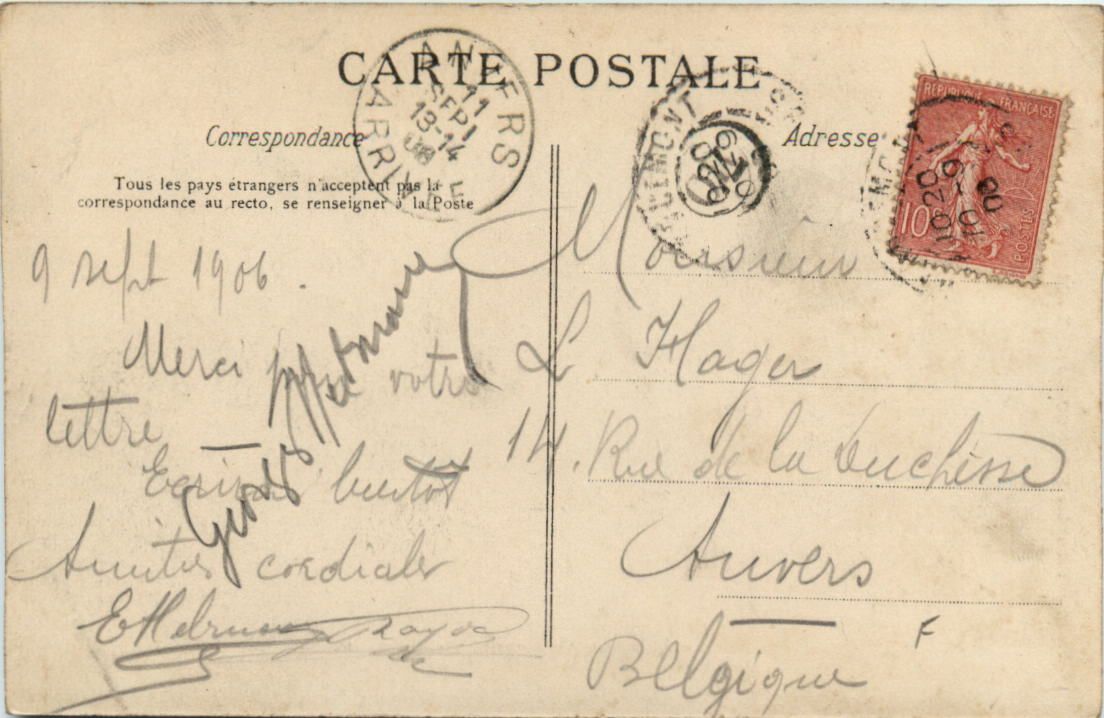 CARTE POSTALE
ANVERS
11
SEPT
13-14
06
ARRIVÉE
Correspondance
Tous les pays étrangers n'acceptent pas la
correspondance au recto, se renseigner à la Poste
9 sept 1906.
Merci votre
lettre
Ecrirai bientôt
Amitiés cordiales
Georges
Adresse
REPUBLIQUE FRANÇAISE
10c
POSTES
Monsieur
L Hager
14. Rue de la Duchesse
Anvers
Belgique
F